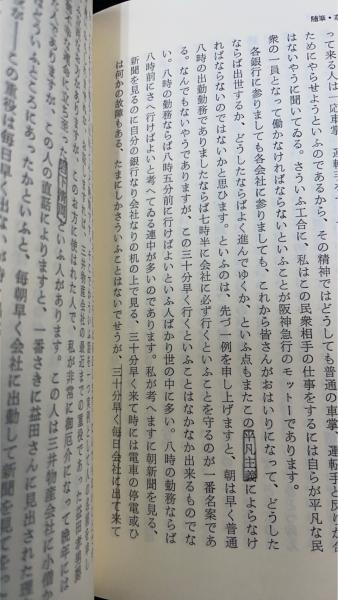 随筆・
って来る人は一応車掌、運転手と
ためにやらせようといふのであるから、その精神ではどうしても普通の車掌、運転手と反りが
はないやうに聞いてゐる。さういふ工合に、私はこの民衆相手の仕事をするには自らが平凡な民
衆の一員となって働かなければならないといふことが阪神急行のモットーであります。
各銀行に参りましても各会社に参りましても、これから皆さんがおはいりになって、どうした
ならば出世するか、どうしたならばよく進んでゆくか、といふ点もまたこの平凡主義によらなけ
ればならないのではないかと思ひます。といふのは、先づ一例を申し上げますと、朝は早く普通
八時の出勤勤務でありましたならば七時半に会社に必ず行くといふことを守るのが一番名案であ
る。なんでもないやうでありますが、この三十分早く行くといふことはなかなか出来るものでな
い。八時の勤務ならば八時五分前に行けばよいといふ人ばかり世の中に多い。八時の勤務ならば
八時前にさへ行けばよいと考へてゐる連中が多いのであります。私が考へますに朝新聞を見る、
新聞を見るのに自分の銀行なり会社なりの机の上で見る、三十分早く来て時には電車の停電或ひ
は何かの故障もある、たまにしかさういふことはないでせうが、三十分早く毎日会社に出て来て
三井物産会社の最近までの重役であった益田孝男爵
このお方に使はれた人で、私が非常に御厄介になって晩年には
といふ人があります。この人は三井物産会社に小僧か
ありますが、この人の直話によりますと、番さきに益田さんに見出された理
といふと、毎朝早く会社に出勤して新聞を見てをっ
の重役は毎日早く出